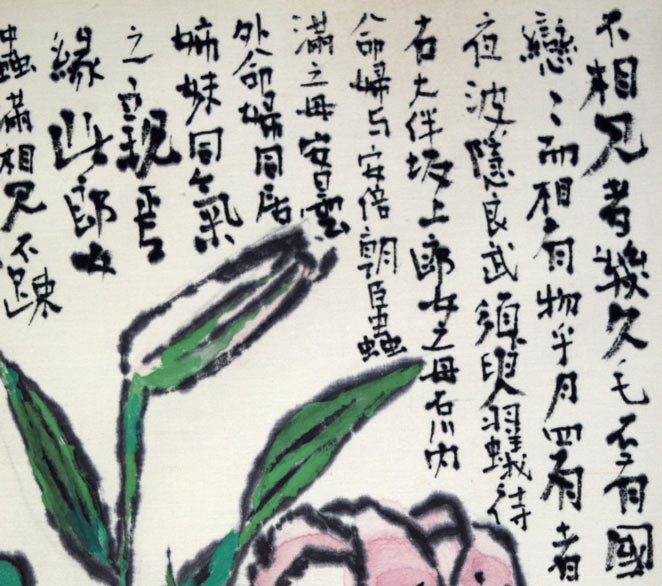 不相見者幾久毛不有國
戀〻而相有物乎月四有者
夜波隱良武須臾羽蟻待
右大伴坂上郎女之母石川内
命婦与安倍朝臣蟲
滿之母安曇
外命婦同居
姉妹同氣
之親焉
緣此郎女
蟲滿相見不踈